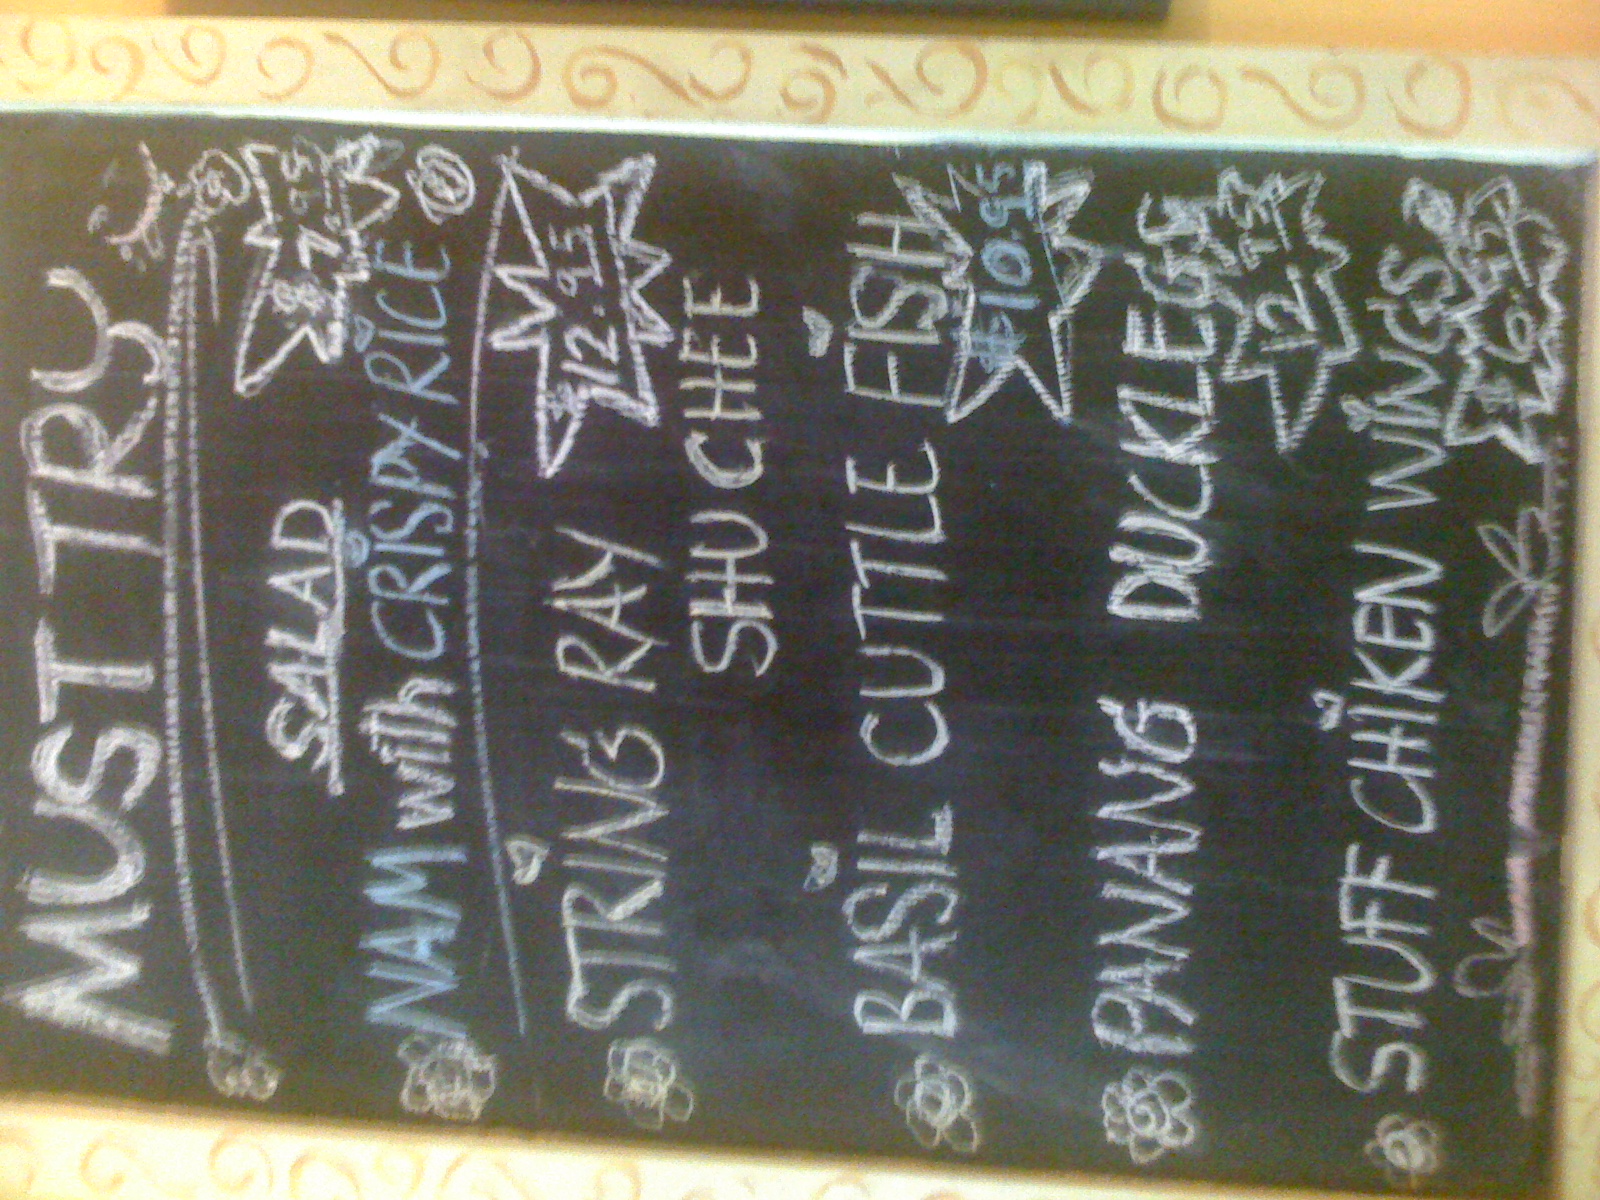 MUST TRY
SALAD
$8.7.95
NAM with CRISPY RICE
STRING RAY
$12.95
SHU CHEE
BASIL CUTTLE FISH
$10.95
PANANG DUCKLEGS
12.95
STUFF CHIKEN WINGS
$6.95